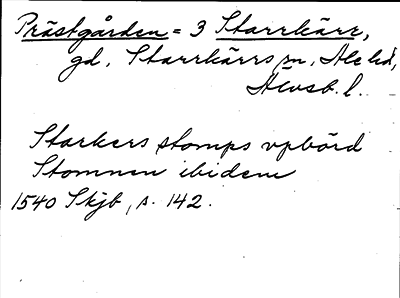 Prästgården = 3 Starrkärr,
gd, Starrkärrs sn, Ale hd,
Älvsb. l.
Starkers stomps vpbörd
Stomnen ibidem
1540 Skjb, s. 142.